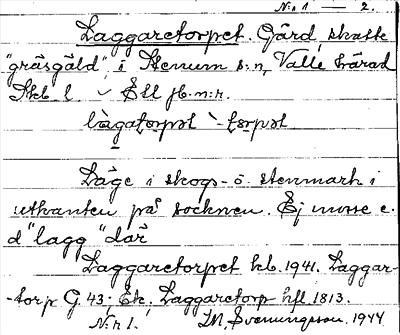 N:r 1 — 2.
Laggaretorpet. Gård, skatte
"gräsgäld", i Stenum s:n, Valle härad
Skb l. Ell jb.n:r.
làgatorpət `-torpət
Läge i skogs- o. stenmark i
utkanten på socknen. Ej mosse e.
d "lagg" där
Laggaretorpet kb. 1941. Laggar-
-torp G. 43; Ek. Laggaretorp hfl 1813.
N:r 1. IM, Svenningson. 1944